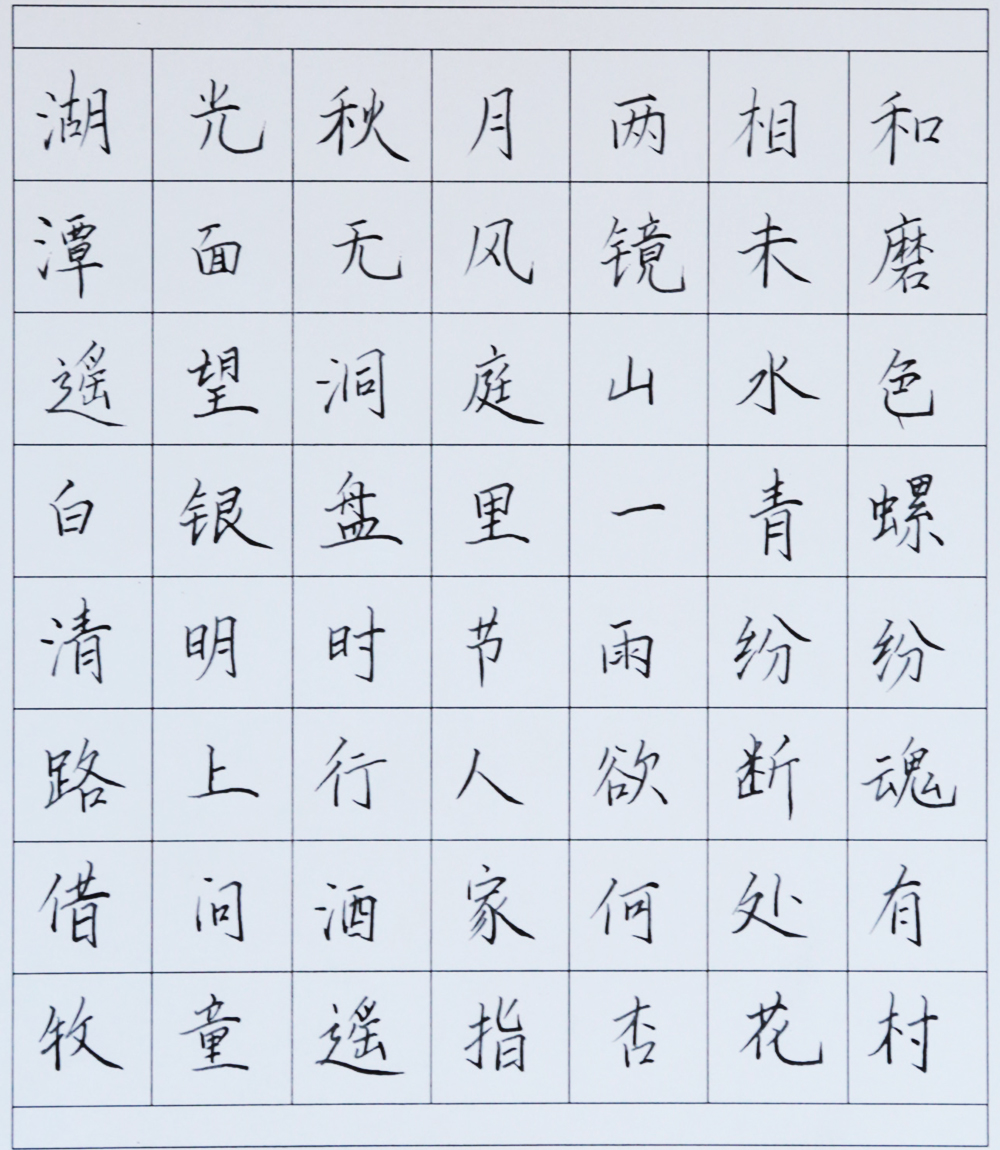 湖光秋月两相和
潭面无风镜未磨
遥望洞庭山水色
白银盘里一青螺
清明时节雨纷纷
路上行人欲断魂
借问酒家何处有
牧童遥指杏花村